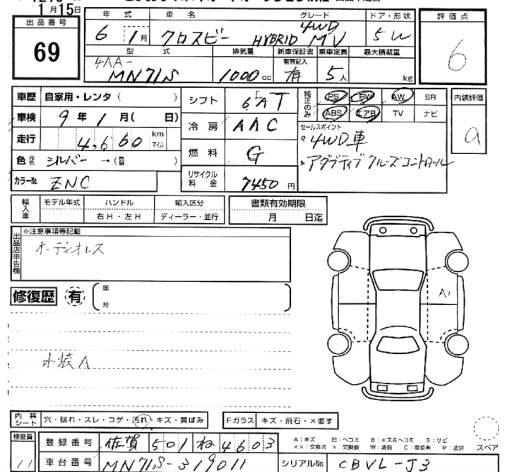 1月15日
出品番号
69
年 車名 グレード ドア・形状 評価点
6年 1月 クロスビー HYBRID MV 4WD 5W 6
型式 排気量 新車保証書 乗車定員 最大積載量
有無記入
4AA-
MN71S 1000cc 有 5人 kg
車歴 自家用・レンタ( ) シフト 6AT 純正のみ PS PW AW SR 内装評価
ABS エアB TV ナビ a
車検 9年1月(日) 冷房 AAC セールスポイント
・4WD車
走行 4,660 km マイル 燃料 G ・アダプティブクルーズコントロール
色 シルバー→( ) リサイクル料金 7450円
カラーNo. ZNC
輸入車 モデル年式 ハンドル 輸入区分 書類有効期限
右H・左H ディーラー・並行 月 日迄
出品店申告欄 ※注意事項等記載
オーディオレス
修復歴 有 (箇所
A1
内装シート 穴・破れ・スレ・コゲ・汚れ・キズ・黄ばみ Fガラス キズ・飛石・×要す
検査員 登録番号 佐賀 501 ね 4603 スペア
11 車台番号 MN71S-319011 シリアルNo. CBVL-J3